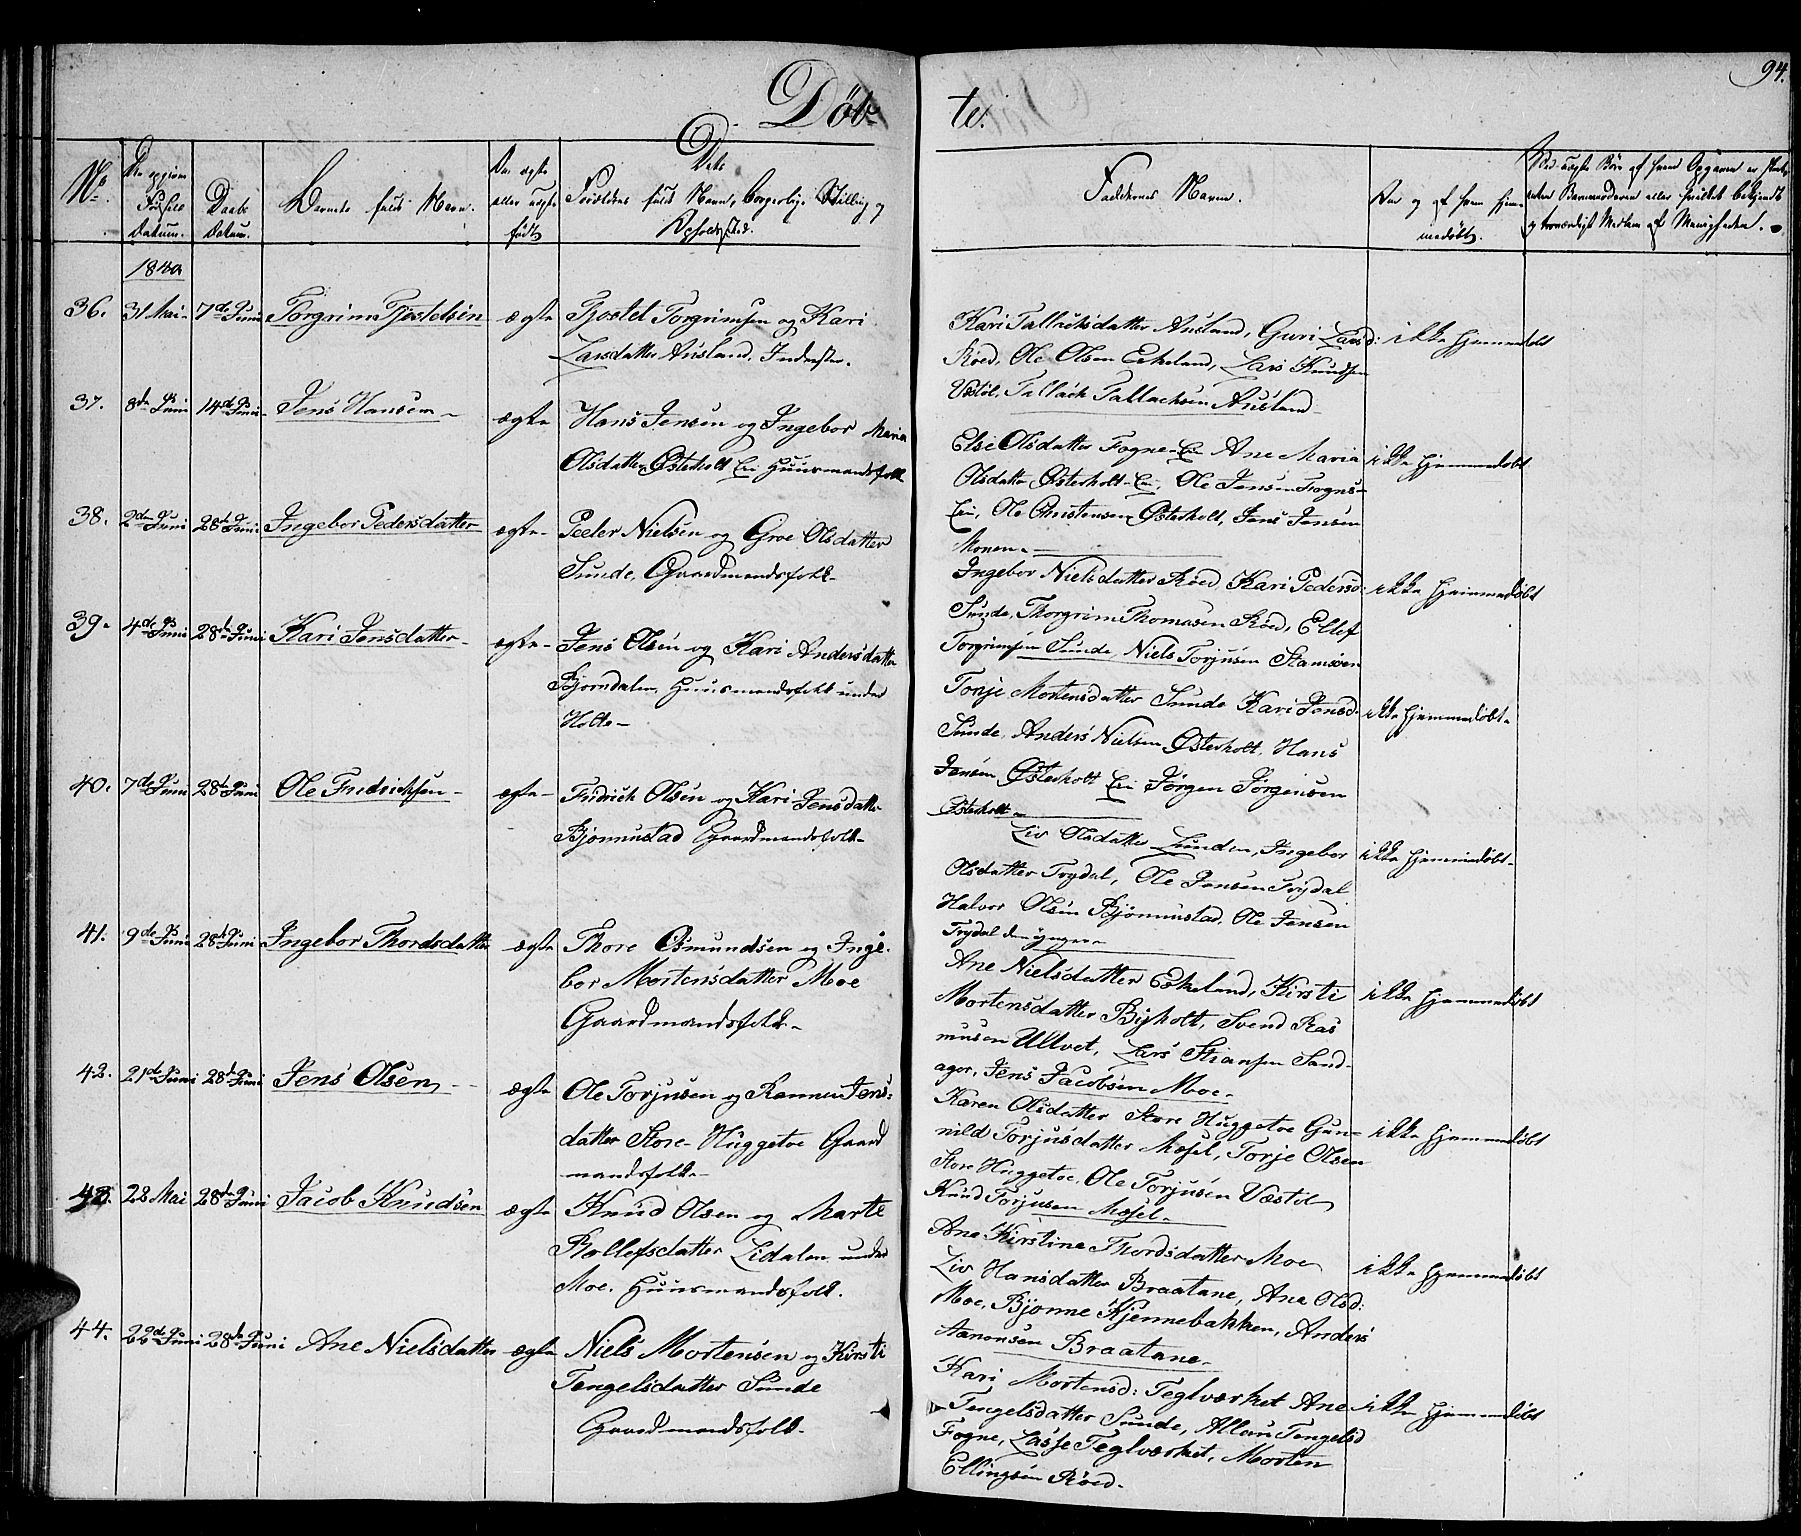 94.
Döb-
te.
No.
Den opgivne Fødsels Datum.
Daabs Datum.
Barnets fulde Navn.
Om ægte eller uægte født
Dets Forældres fulde Navn, borgerlige Stilling og Opholdssted.
Faddernes Navne.
Om og af hvem hjemmedøbt.
1840
36. 31 Mai- 7de Juni Torgrim Tjostelsen ægte Tjostel Torgrimsen og Kari
Larsdatter Ausland. Inderster.
Kari Tallacksdatter Ausland, Guri Larsd: ikke hjemmedøbt
Röed, Ole Olsen Eskeland, Lars Knudsen
Væstöl, Tallack Tallacksen Ausland-
37. 8de Juni 14de Juni- Jens Hansen- ægte Hans Jensen og Ingebor Maria
Olsdatter Østerholt Eie Huusmandsfolk
Else Olsdatter Fogne-Eie Ane Maria ikke hjemmedøbt
Olsdatter Østerholt-Eie, Ole Jensen Fogne-
Eie, Ole Christensen Østerholt, Jens Jensen
Monen-
38. 2den Juni 28de Juni Ingebor Pedersdatter ægte- Peder Nielsen og Groe Olsdatter
Sunde, Gaardmandsfolk-
Ingebor Nielsdatter Röed, Kari Pedersd: ikke hjemmedøbt
Sunde, Thorgrim Thomasen Röed, Ellef
Torgrimsen Sunde, Niels Torjusen Stamsöen
39. 4de Juni 28de Juni Kari Jensdatter- ægte- Jens Olsen og Kari Andersdatter
Bjorndalen, Huusmandsfolk under
Holte-
Tonje Mortensdatter Sunde Kari Jensd. ikke hjemmedøbt-
Sunde, Anders Nielsen Østerholt, Hans
Jensen Østerholt Eie Jörgen Jörgensen
Østerholt-
40. 7de Juni 28de Juni Ole Fredrichsen- ægte- Fridrich Olsen og Kari Jensdatter
Bjonnustad Gaardmandsfolk-
Liv Olsdatter Lunden, Ingebor ikke hjemmedøbt-
Olsdatter Trydal, Ole Jensen Trydal
Halvor Olsen Bjönnustad, Ole Jensen
Trydal den yngere-
41. 9de Juni 28de Juni Ingebor Thordsdatter ægte Thore Osmundsen og Inge-
bor Mortensdatter Moe
Gaardmandsfolk-
Ane Nielsdatter Eskeland, Kirsti ikke hjemmedøbt
Mortensdatter Bijholt, Svend Ras
musen Ulltvet, Lars Stiansen Sand-
ager, Jens Jacobsen Moe-
42. 21de Juni 28de Juni Jens Olsen ægte Ole Torjusen og Rannei Jens-
datter Store-Huggetoe Gaard
mandsfolk-
Karen Olsdatter Store Huggetoe Gun- ikke hjemmedøbt
nild Torjusdatter Mosel, Torje Olsen
Store Huggetoe, Ole Torjusen Væstöl
Knud Torjusen Mosel-
43. 22 Mai 28de Juni Jacob Knudsen ægte Knud Olsen og Marte
Rollefsdatter Lidalen under
Moe. Huusmandsfolk.
Ane Kirstine Thordsdatter Moe ikke hjemmedøbt
Liv Hansdatter Braatane, Ane Olsd:
Moe, Bjonne Kjennebakken, Anders
Aanonsen Braatane-
44. 22de Juni 28de Juni Ane Nielsdatter ægte Niels Mortensen og Kirsti
Tengelsdatter Sunde
Gaardmandsfolk.
Kari Mortensd: Teglværket Ane ikke hjemmedøbt
Tengelsdatter Sunde, Alleu Tengelsd
Fogne, Lasse Teglværket, Morten
Ellingsen Röed.